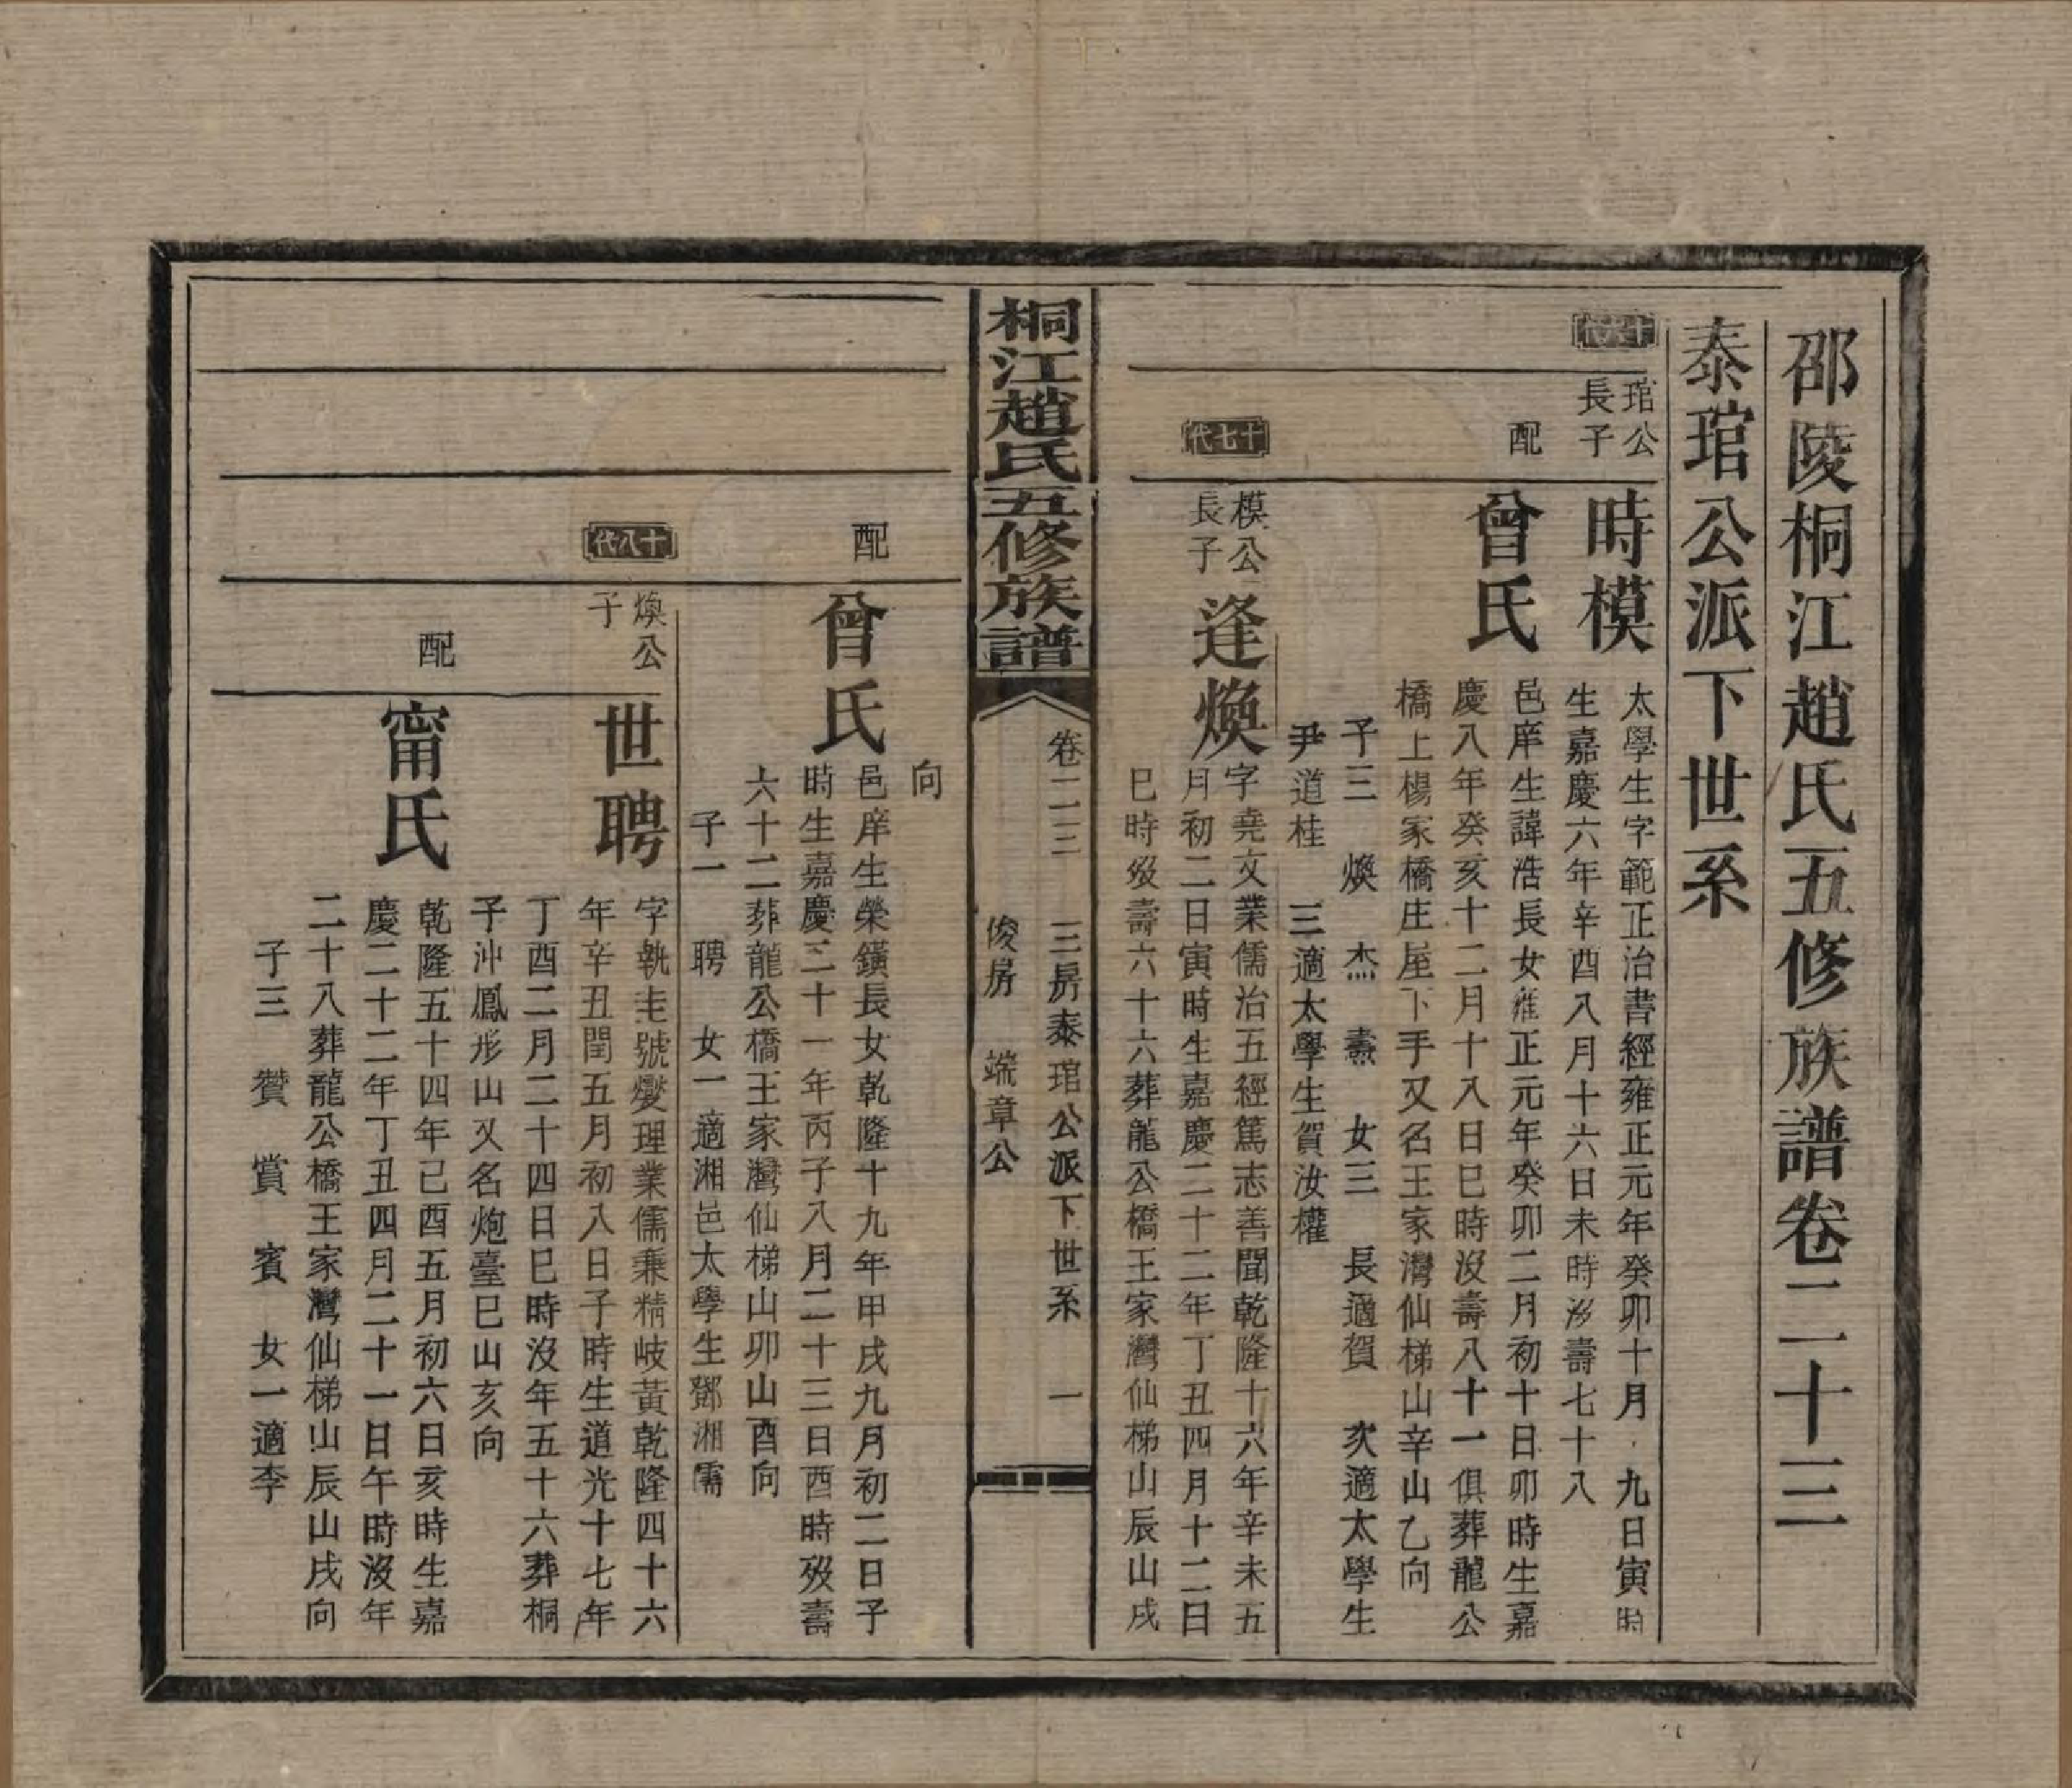 邵陵桐江趙氏五修族譜卷二十三
泰琯公派下世系
十六代
琯公
長子
時模
太學生字範正治書經雍正元年癸卯十月九日寅時
生嘉慶六年辛酉八月十六日未時歿壽七十八
配
曾氏
邑庠生諱浩長女雍正元年癸卯二月初十日卯時生嘉
慶八年癸亥十二月十八日巳時沒壽八十一俱葬龍公
橋上楊家橋庄屋下手又名王家灣仙梯山辛山乙向
子三 煥 杰 燾 女三 長適賀 次適太學生
尹道桂 三適太學生賀汝權
十七代
模公
長子
逢煥
字堯文業儒治五經篤志善聞乾隆十六年辛未五
月初二日寅時生嘉慶二十二年丁丑四月十二日
巳時歿壽六十六葬龍公橋王家灣仙梯山辰山戌
桐江趙氏五修族譜
卷二三 三房泰琯公派下世系 一
俊房 端章公
向
配
曾氏
邑庠生榮鐄長女乾隆十九年甲戌九月初二日子
時生嘉慶二十一年丙子八月二十三日酉時歿壽
六十二葬龍公橋王家灣仙梯山卯山酉向
子一 聘 女一適湘邑太學生鄧湘霈
十八代
煥公
子
世聘
字執圭號燮理業儒兼精岐黃乾隆四十六
年辛丑閏五月初八日子時生道光十七年
丁酉二月二十四日巳時沒年五十六葬桐
子沖鳳形山又名炮臺巳山亥向
配
甯氏
乾隆五十四年己酉五月初六日亥時生嘉
慶二十二年丁丑四月二十一日午時沒年
二十八葬龍公橋王家灣仙梯山辰山戌向
子三 贊 賞 賓 女一適李